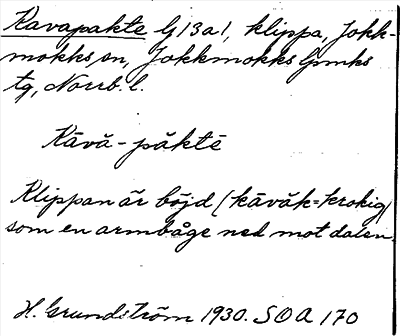 Kavapakte G 13a1, klippa, Jokk-
mokks sn, Jokkmokks lpmks
tg, Norrb. l.
Kāvă-păktē
Klippan är böjd (kāvăk=krokig)
som en armbåge ned mot dalen.
H. Grundström 1930. SOA 170